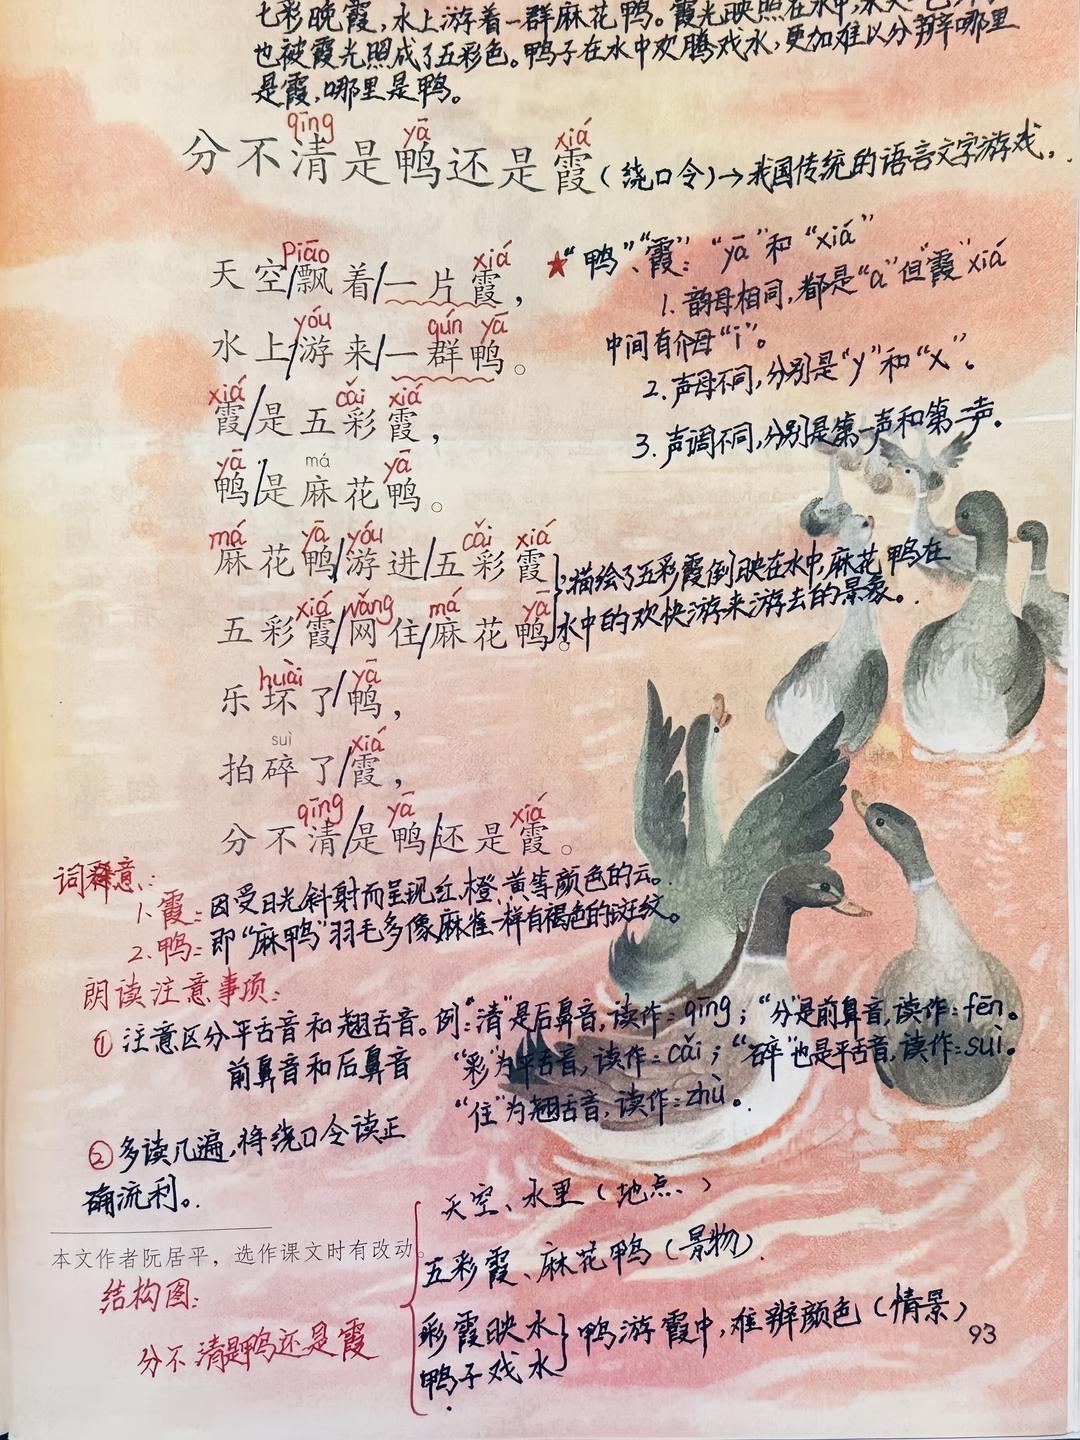 七彩晚霞，水上游着一群麻花鸭。霞光映照在水中，
也被霞光照成了五彩色。鸭子在水中欢腾戏水，更加难以分辨哪里
是霞，哪里是鸭。
qīng yā xiá
分不清是鸭还是霞（绕口令）→我国传统的语言文字游戏。
piāo xiá
天空/飘着/一片霞，
yóu qún yā
水上/游来/一群鸭。
xiá cǎi xiá
霞/是五彩霞，
yā má yā
鸭/是麻花鸭。
má yā yóu cǎi xiá
麻花鸭/游进/五彩霞，
xiá wǎng má yā
五彩霞/网住/麻花鸭。
huài yā
乐坏了/鸭，
suì xiá
拍碎了/霞，
qīng yā xiá
分不清/是鸭/还是霞。
★“鸭”、“霞”：“yā”和“xiá”
1. 韵母相同，都是“a”但“霞”xiá
中间有介母“i”。
2. 声母不同，分别是“y”和“x”。
3. 声调不同，分别是第一声和第二声。
描绘了五彩霞倒映在水中，麻花鸭在
水中的欢快游来游去的景象。
词释意：
1. 霞：因受日光斜射而呈现红、橙、黄等颜色的云。
2. 鸭：即“麻鸭”羽毛多像麻雀一样有褐色的斑纹。
朗读注意事项：
①注意区分平舌音和翘舌音。例：“清”是后鼻音，读作：qīng；“分”是前鼻音，读作：fēn。
前鼻音和后鼻音 “彩”为平舌音，读作：cǎi；“碎”也是平舌音，读作：suì。
“住”为翘舌音，读作：zhù。
②多读几遍，将绕口令读正
确流利。
本文作者阮居平，选作课文时有改动。
结构图：
分不清是鸭还是霞
天空、水里（地点）
五彩霞、麻花鸭（景物）
彩霞映水
鸭子戏水
鸭游霞中，难辨颜色（情景）
93